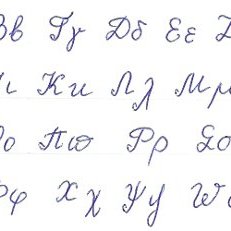 Ββ Γγ Δδ Εε
ι Κκ Λλ Μμ
ο Ππ Ρρ Σσ
Φφ Χχ Ψψ Ωω